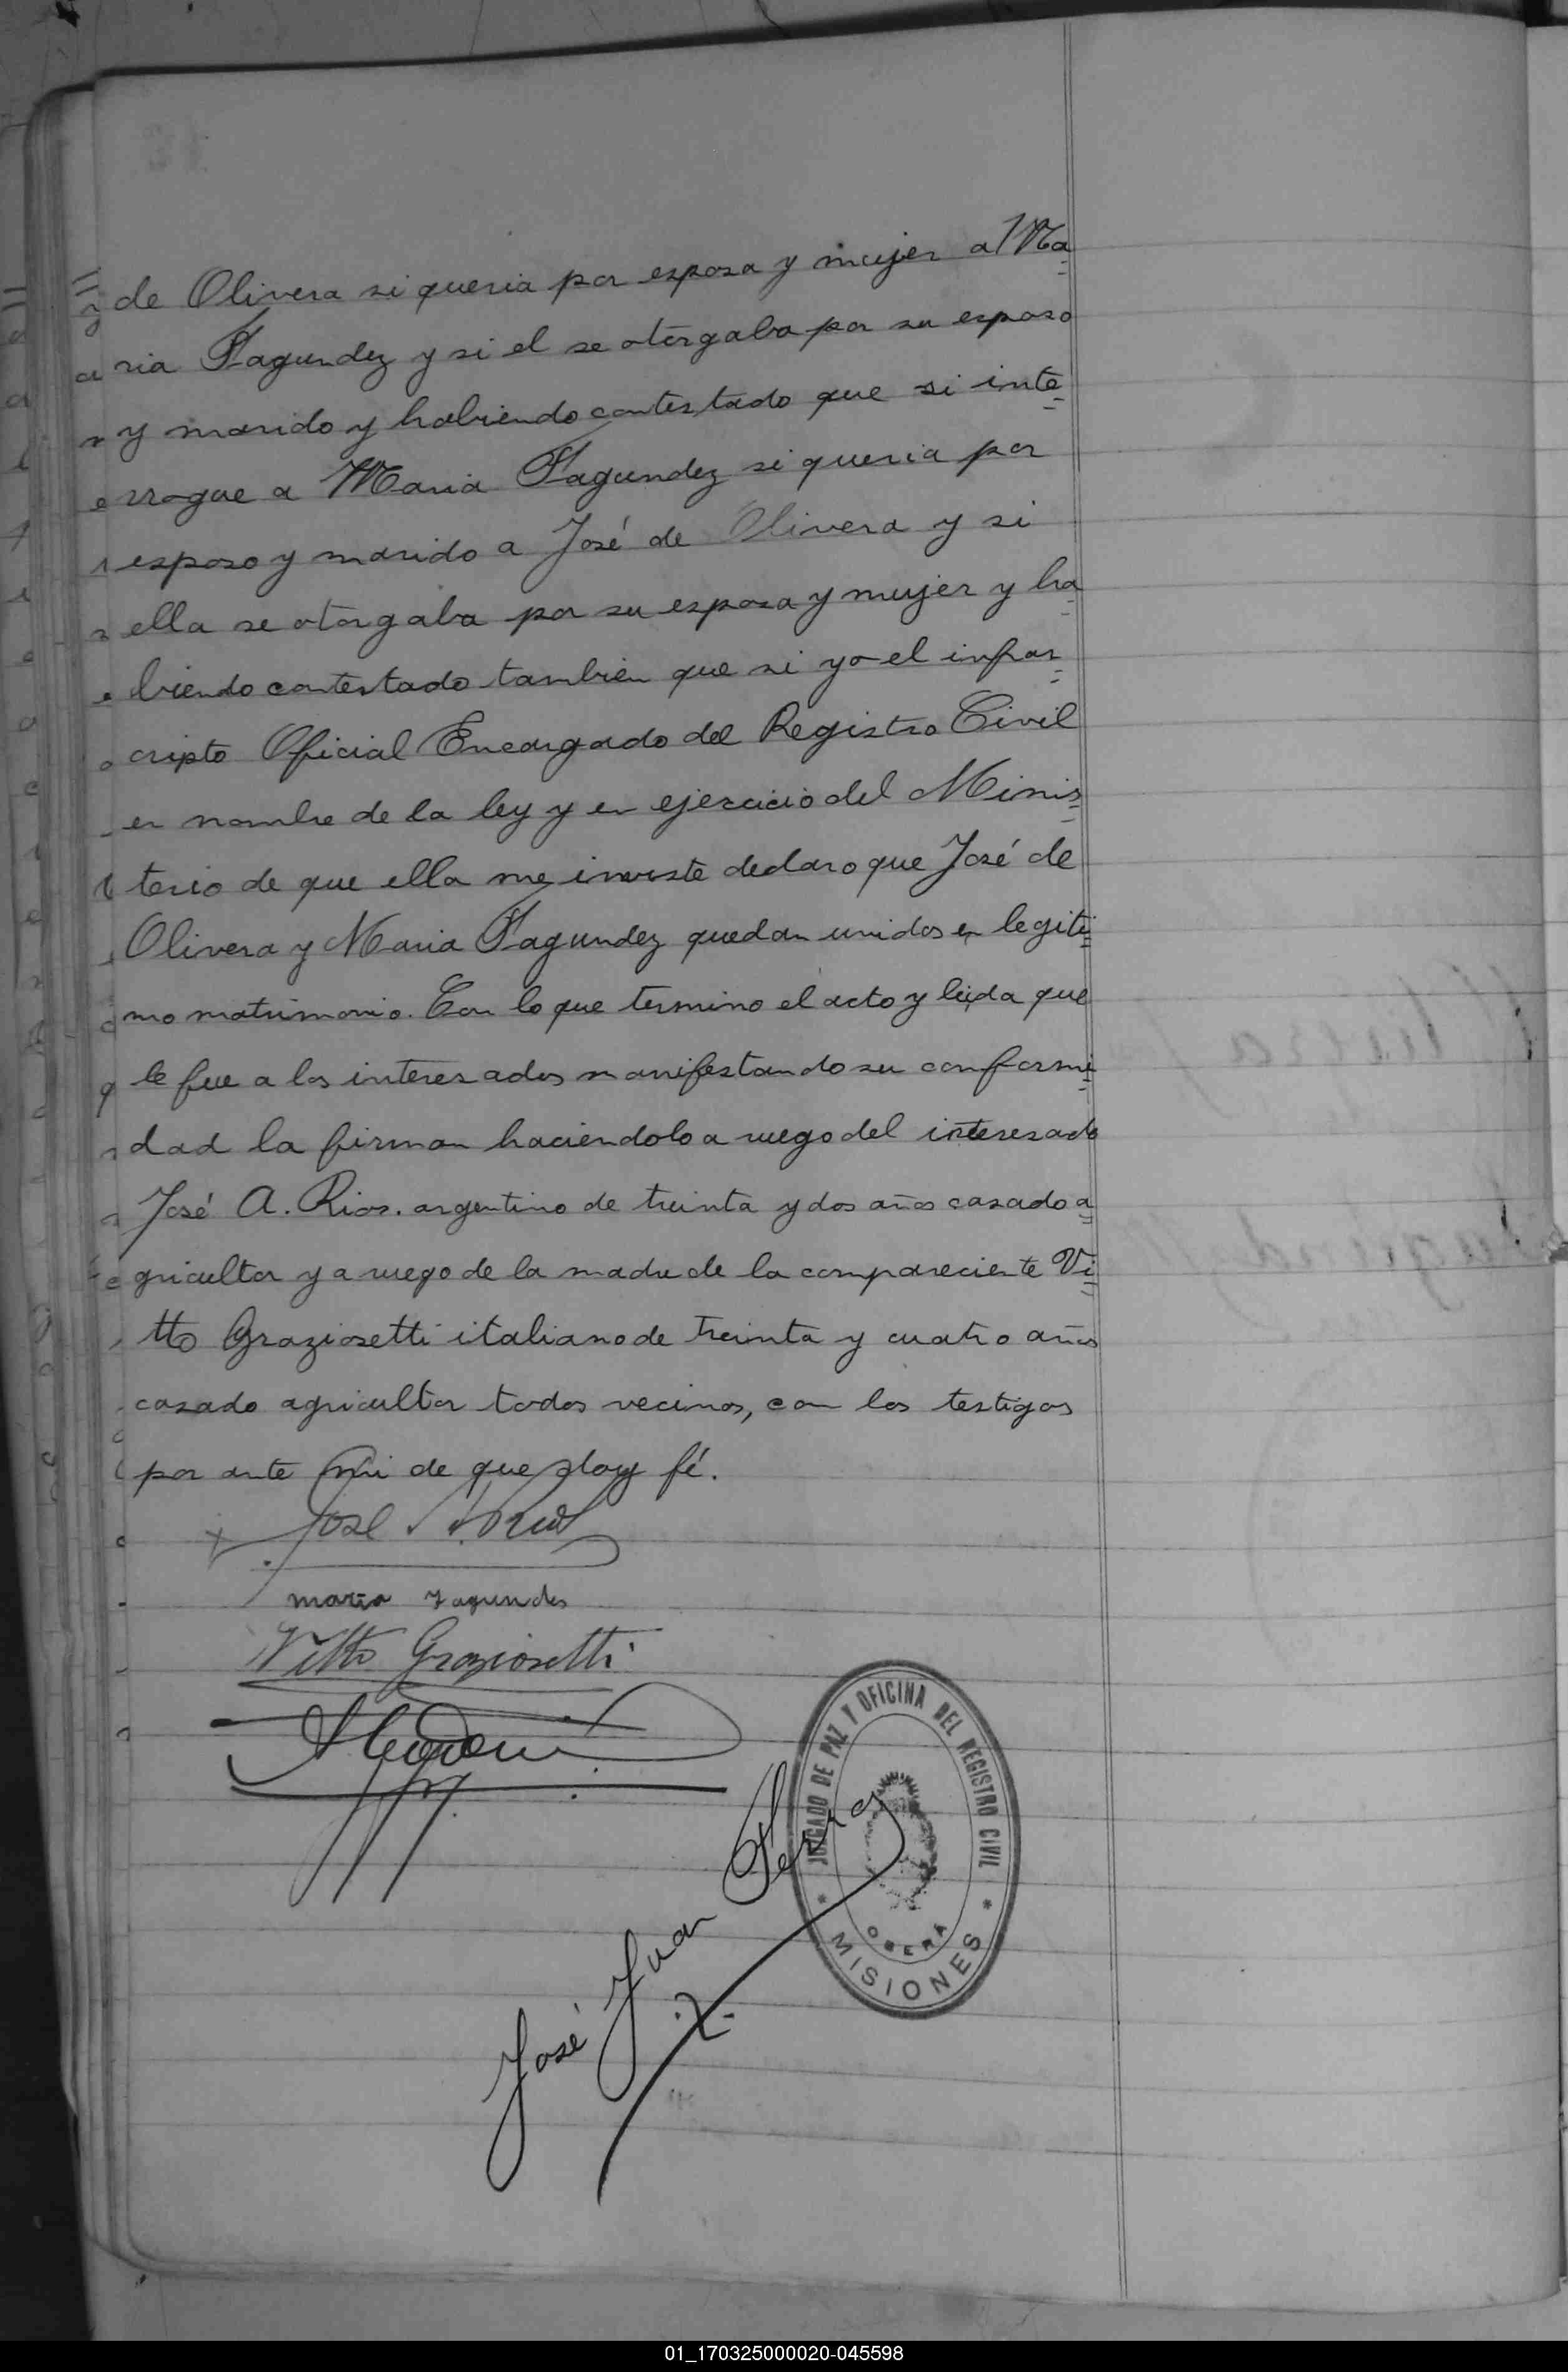 de Olivera si queria por esposa y mujer a Ma=
ria Fagundez y si el se otorgaba por su esposo
y marido y habiendo contestado que si inte=
rrogue a Maria Fagundez si queria por
esposo y marido a José de Olivera y si
ella se otorgaba por su esposa y mujer y ha=
biendo contestado tambien que si yo el infras=
cripto Oficial Encargado del Registro Civil
en nombre de la ley y en ejercicio del Minis=
terio de que ella me inviste declaro que José de
Olivera y Maria Fagundez quedan unidos en legiti=
mo matrimonio. Con lo que termino el acto y leida que
le fue a los interesados manifestando su conformi=
dad la firman haciendolo a ruego del interesado
José A. Rios. argentino de treinta y dos años casado a=
gricultor y a ruego de la madre de la compareciente Vi=
tto Graziosetti italiano de treinta y cuatro años
casado agricultor todos vecinos, con los testigos
por ante mi de que doy fé.
José A. Rios
maria Fagundes
Vitto Graziosetti
José Juan Ferra
JUZGADO DE PAZ Y OFICINA DEL REGISTRO CIVIL
OBERA
* MISIONES *
01_170325000020-045598